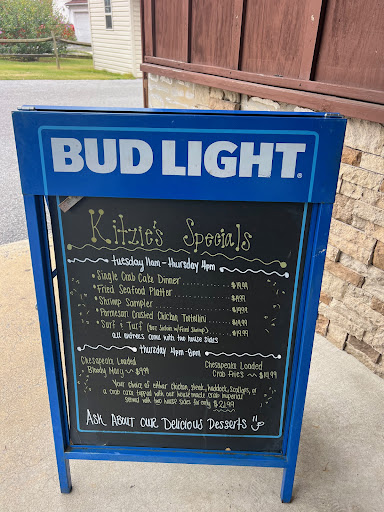 BUD LIGHT
Kitzie's Specials
Tuesday 11am - Thursday 4pm
• Single Crab Cake Dinner ......... $19.99
• Fried Seafood Platter ......... $19.99
• Shrimp Sampler ......... $19.99
• Parmesan Crusted Chicken Tortellini ......... $19.99
• Surf & Turf (6oz Sirloin w/ Fried Shrimp) ......... $19.99
all entrees come with two house sides
Thursday 4pm-8pm
Chesapeake Loaded Bloody Mary ~ $9.99
Chesapeake Loaded Crab Fries ~ $14.99
Your choice of either chicken, steak, haddock, scallops, or
a crab cake topped with our housemade crab imperial
served with two house sides for only $21.99
Ask About our Delicious Desserts